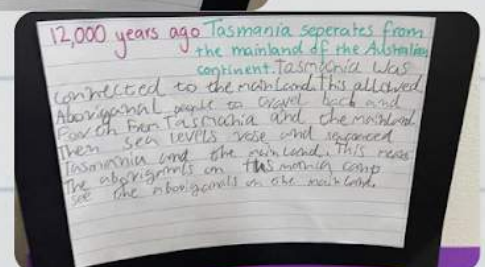 12,000 years ago Tasmania seperates from
the mainland of the Australian
continent. Tasmania was
connected to the mainland. This allowed
Aboriganal people to travel back and
Forth from Tasmania and the mainland.
Then sea levels rose and seperated
Tasmainia and the mainland. This means
The aborigonals on tasmania
see the aborigonals on the mainland.